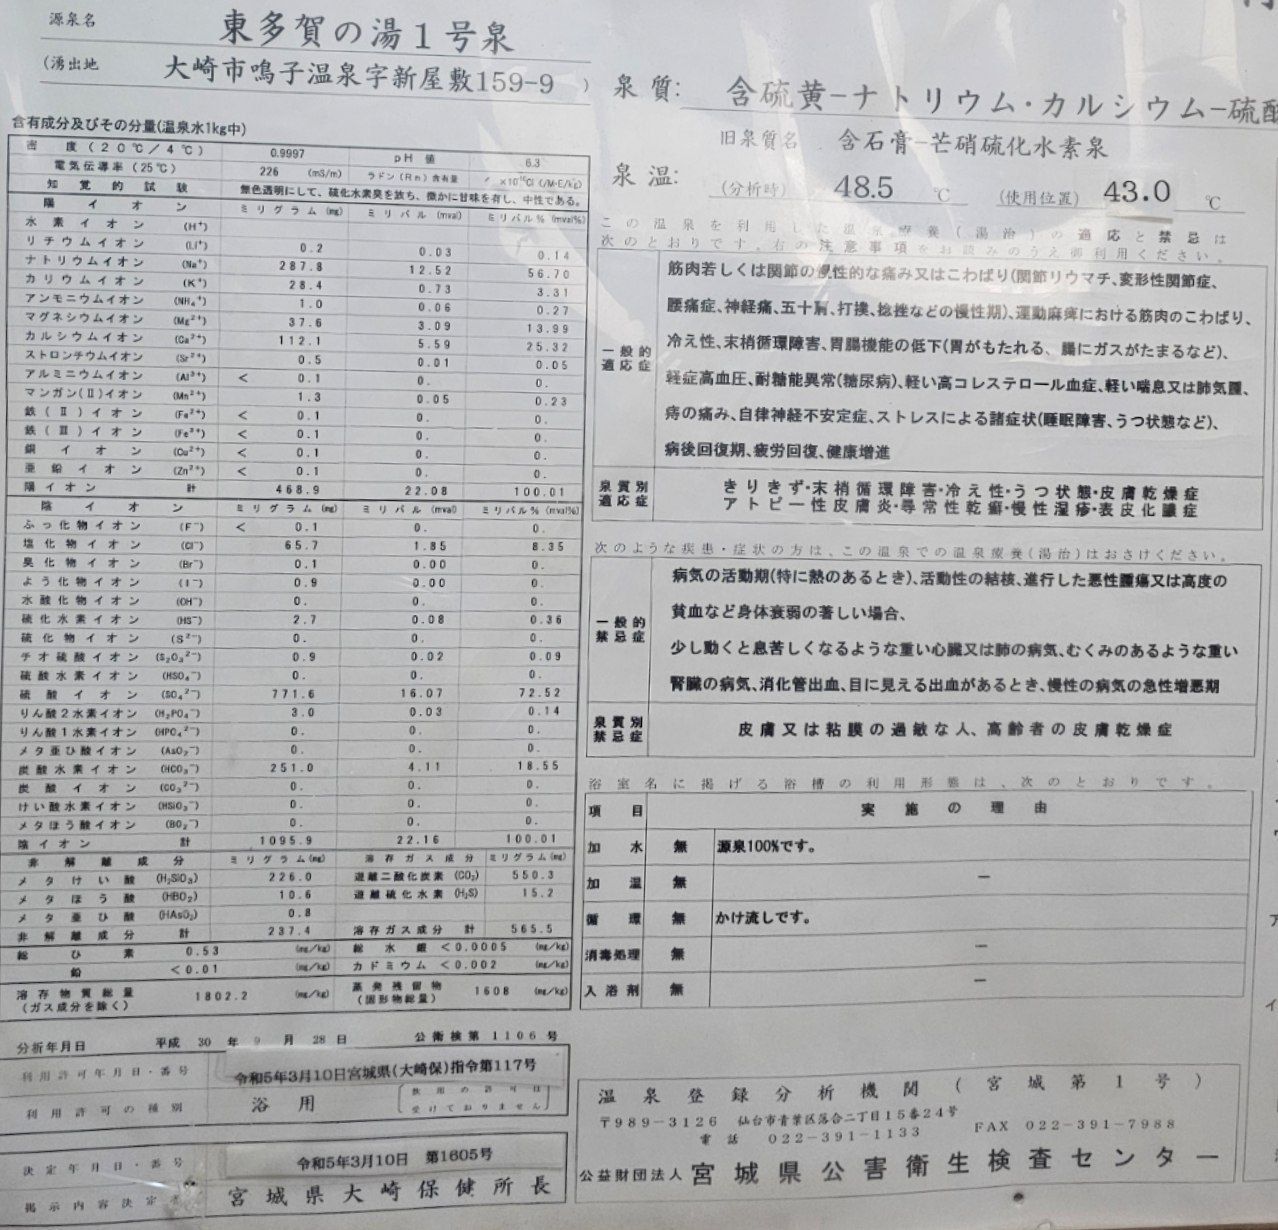 源泉名 東多賀の湯1号泉
(湧出地 大崎市鳴子温泉字新屋敷159-9 )
含有成分及びその分量(温泉水1kg中)
密度(20℃/4℃) 0.9997 pH値 6.3
電気伝導率(25℃) 226 (mS/m) ラドン(Rn)含有量
知覚的試験 無色透明にして、硫化水素臭を放ち、微かに甘味を有し、中性である。
陽イオン ミリグラム(mg) ミリバル(mval) ミリバル%(mval%)
水素イオン (H⁺)
リチウムイオン (Li⁺) 0.2 0.03 0.14
ナトリウムイオン (Na⁺) 287.8 12.52 56.70
カリウムイオン (K⁺) 28.4 0.73 3.31
アンモニウムイオン (NH₄⁺) 1.0 0.06 0.27
マグネシウムイオン (Mg²⁺) 37.6 3.09 13.99
カルシウムイオン (Ca²⁺) 112.1 5.59 25.32
ストロンチウムイオン (Sr²⁺) 0.5 0.01 0.05
アルミニウムイオン (Al³⁺) < 0.1 0. 0.
マンガン(Ⅱ)イオン (Mn²⁺) 1.3 0.05 0.23
鉄(Ⅱ)イオン (Fe²⁺) < 0.1 0. 0.
鉄(Ⅲ)イオン (Fe³⁺) < 0.1 0. 0.
銅イオン (Cu²⁺) < 0.1 0. 0.
亜鉛イオン (Zn²⁺) < 0.1 0. 0.
陽イオン 計 468.9 22.08 100.01
陰イオン ミリグラム(mg) ミリバル(mval) ミリバル%(mval%)
ふっ化物イオン (F⁻) < 0.1 0. 0.
塩化物イオン (Cl⁻) 65.7 1.85 8.35
臭化物イオン (Br⁻) 0.1 0.00 0.
よう化物イオン (I⁻) 0.9 0.00 0.
水酸化物イオン (OH⁻) 0. 0. 0.
硫化水素イオン (HS⁻) 2.7 0.08 0.36
硫化物イオン (S²⁻) 0. 0. 0.
チオ硫酸イオン (S₂O₃²⁻) 0.9 0.02 0.09
硫酸水素イオン (HSO₄⁻) 0. 0. 0.
硫酸イオン (SO₄²⁻) 771.6 16.07 72.52
りん酸2水素イオン (H₂PO₄⁻) 3.0 0.03 0.14
りん酸1水素イオン (HPO₄²⁻) 0. 0. 0.
メタ亜ひ酸イオン (AsO₂⁻) 0. 0. 0.
炭酸水素イオン (HCO₃⁻) 251.0 4.11 18.55
炭酸イオン (CO₃²⁻) 0. 0. 0.
けい酸水素イオン (HSiO₃⁻) 0. 0. 0.
メタほう酸イオン (BO₂⁻) 0. 0. 0.
陰イオン 計 1095.9 22.16 100.01
非解離成分 ミリグラム(mg) 溶存ガス成分 ミリグラム(mg)
メタけい酸 (H₂SiO₃) 226.0 遊離二酸化炭素 (CO₂) 550.3
メタほう酸 (HBO₂) 10.6 遊離硫化水素 (H₂S) 15.2
メタ亜ひ酸 (HAsO₂) 0.8
非解離成分 計 237.4 溶存ガス成分 計 565.5
総ひ素 0.53 (mg/kg) 総水銀 <0.0005 (mg/kg)
鉛 <0.01 (mg/kg) カドミウム <0.002 (mg/kg)
溶存物質総量 1802.2 (mg/kg) 蒸発残留物 1608 (mg/kg)
(ガス成分を除く) (固形物総量)
分析年月日 平成 30 年 9 月 28 日 公衛検第1106号
利用許可年月日・番号 令和5年3月10日宮城県(大崎保)指令第117号
利用許可の種別 浴用 [飲用の許可は
受けておりません]
決定年月日・番号 令和5年3月10日 第1605号
掲示内容決定 宮城県大崎保健所長
泉質: 含硫黄-ナトリウム・カルシウム-硫酸
旧泉質名 含石膏-芒硝硫化水素泉
泉温: (分析時) 48.5 ℃ (使用位置) 43.0 ℃
この温泉を利用した温泉療養(湯治)の適応と禁忌は
次のとおりです。右の注意事項をお読みのうえ御利用ください。
一般的
適応症
筋肉若しくは関節の慢性的な痛み又はこわばり(関節リウマチ、変形性関節症、
腰痛症、神経痛、五十肩、打撲、捻挫などの慢性期)、運動麻痺における筋肉のこわばり、
冷え性、末梢循環障害、胃腸機能の低下(胃がもたれる、腸にガスがたまるなど)、
軽症高血圧、耐糖能異常(糖尿病)、軽い高コレステロール血症、軽い喘息又は肺気腫、
痔の痛み、自律神経不安定症、ストレスによる諸症状(睡眠障害、うつ状態など)、
病後回復期、疲労回復、健康増進
泉質別
適応症
きりきず・末梢循環障害・冷え性・うつ状態・皮膚乾燥症
アトピー性皮膚炎・尋常性乾癬・慢性湿疹・表皮化膿症
次のような疾患・症状の方は、この温泉での温泉療養(湯治)はおさけください。
一般的
禁忌症
病気の活動期(特に熱のあるとき)、活動性の結核、進行した悪性腫瘍又は高度の
貧血など身体衰弱の著しい場合、
少し動くと息苦しくなるような重い心臓又は肺の病気、むくみのあるような重い
腎臓の病気、消化管出血、目に見える出血があるとき、慢性の病気の急性増悪期
泉質別
禁忌症
皮膚又は粘膜の過敏な人、高齢者の皮膚乾燥症
浴室名に掲げる浴槽の利用形態は、次のとおりです。
項目 実施の理由
加水 無 源泉100%です。
加温 無 ー
循環 無 かけ流しです。
消毒処理 無 ー
入浴剤 無 ー
温泉登録分析機関(宮城第1号)
〒989-3126 仙台市青葉区落合二丁目15番24号
電話 022-391-1133 FAX 022-391-7988
公益財団法人 宮城県公害衛生検査センター